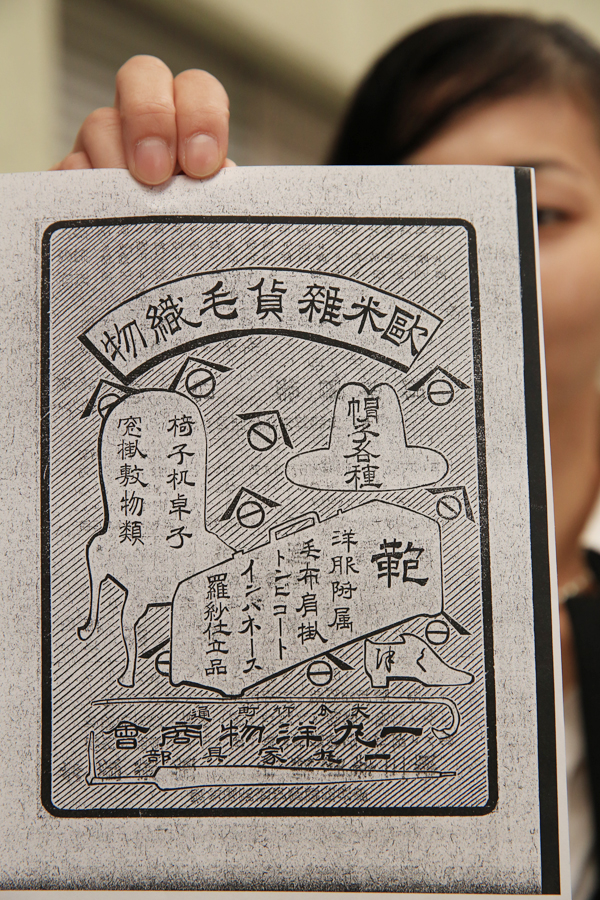 歐米雜貨毛織物
帽子各種
椅子机卓子
窓掛敷物類
範
洋服附属
毛布肩掛
トンビコート
インバネース
羅紗仕立品
大分竹町通
一九洋物商會
一九家具部